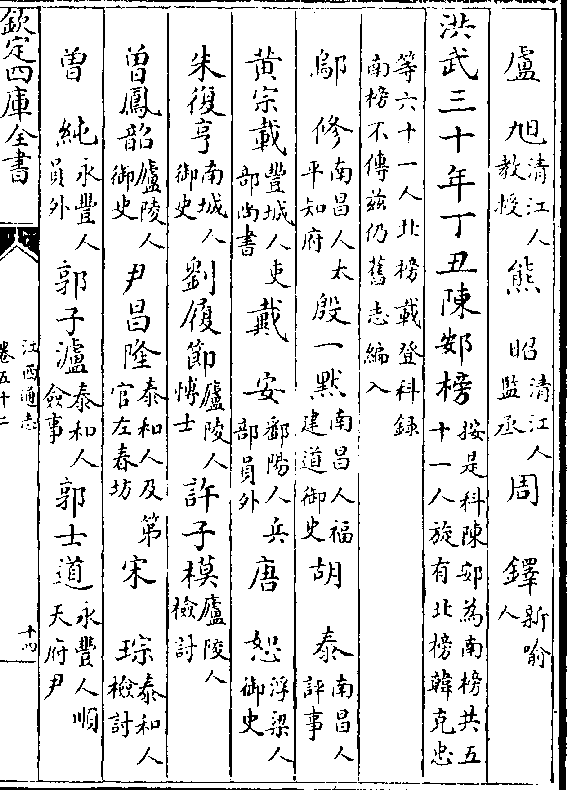 盧旭清江人教授 熊昭清江人監丞 周鐸新喻人
洪武三十年丁丑陳䢿榜按是科陳䢿為南榜共五十一人旋有北榜韓克忠
等六十一人北榜載登科錄南榜不傳兹仍舊志編入
鄔修南昌人太平知府 殷一黙南昌人福建道御史 胡泰南昌人評事
黄宗載豐城人吏部尚書 戴安鄱陽人兵部員外 唐恕浮梁人御史
朱復亨南城人御史 劉履節廬陵人博士 許子模廬陵人檢討
曾鳳韶廬陵人御史 尹昌隆泰和人及第官左春坊 宋琮泰和人檢討
曾純永豐人員外 郭子瀘泰和人僉事 郭士道永豐人順天府尹
欽定四庫全書
江西通志
卷五十二
十四